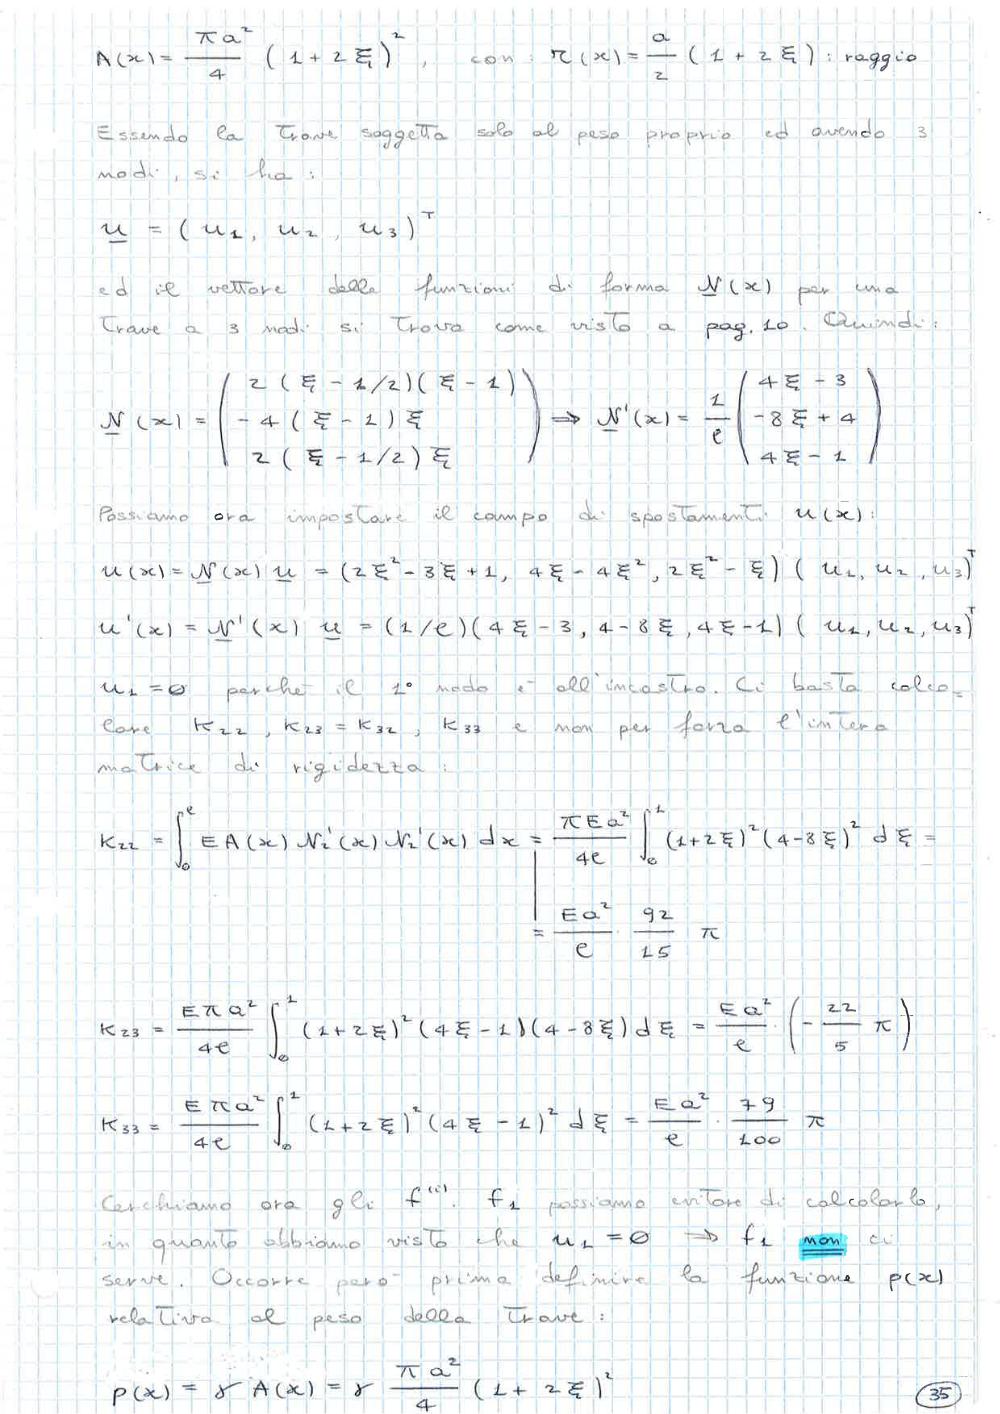 A(x) = πa²/4 (1 + 2ξ)², con: r(x) = a/2 (1 + 2ξ): raggio
Essendo la trave soggetta solo al peso proprio ed avendo 3
nodi, si ha:
u = (u₁, u₂, u₃)ᵀ
ed il vettore delle funzioni di forma N(x) per una
trave a 3 nodi si trova come visto a pag. 10. Quindi:
N(x) = ( 2(ξ - 1/2)(ξ - 1) ; -4(ξ - 1)ξ ; 2(ξ - 1/2)ξ ) ⇒ N'(x) = 1/ℓ ( 4ξ - 3 ; -8ξ + 4 ; 4ξ - 1 )
Possiamo ora impostare il campo di spostamenti u(x):
u(x) = N(x) u = (2ξ² - 3ξ + 1, 4ξ - 4ξ², 2ξ² - ξ) (u₁, u₂, u₃)ᵀ
u'(x) = N'(x) u = (1/ℓ)(4ξ - 3, 4 - 8ξ, 4ξ - 1) (u₁, u₂, u₃)ᵀ
u₁ = 0 perché il 1° nodo è all'incastro. Ci basta calco-
lare K₂₂, K₂₃ = K₃₂, K₃₃ e non per forza l'intera
matrice di rigidezza:
K₂₂ = ∫₀ˡ EA(x) N₂'(x) N₂'(x) dx = πEa²/4ℓ ∫₀¹ (1+2ξ)² (4-8ξ)² dξ =
= Ea²/ℓ · 92/15 π
K₂₃ = Eπa²/4ℓ ∫₀¹ (1+2ξ)² (4ξ-1)(4-8ξ) dξ = Ea²/ℓ · (- 22/5 π)
K₃₃ = Eπa²/4ℓ ∫₀¹ (1+2ξ)² (4ξ-1)² dξ = Ea²/ℓ · 79/100 π
Cerchiamo ora gli f⁽ⁱ⁾. f₁ possiamo evitare di calcolarlo,
in quanto abbiamo visto che u₁ = 0 ⇒ f₁ non ci
serve. Occorre però prima definire la funzione p(x)
relativa al peso della trave:
p(x) = γ A(x) = γ πa²/4 (1 + 2ξ)²
35